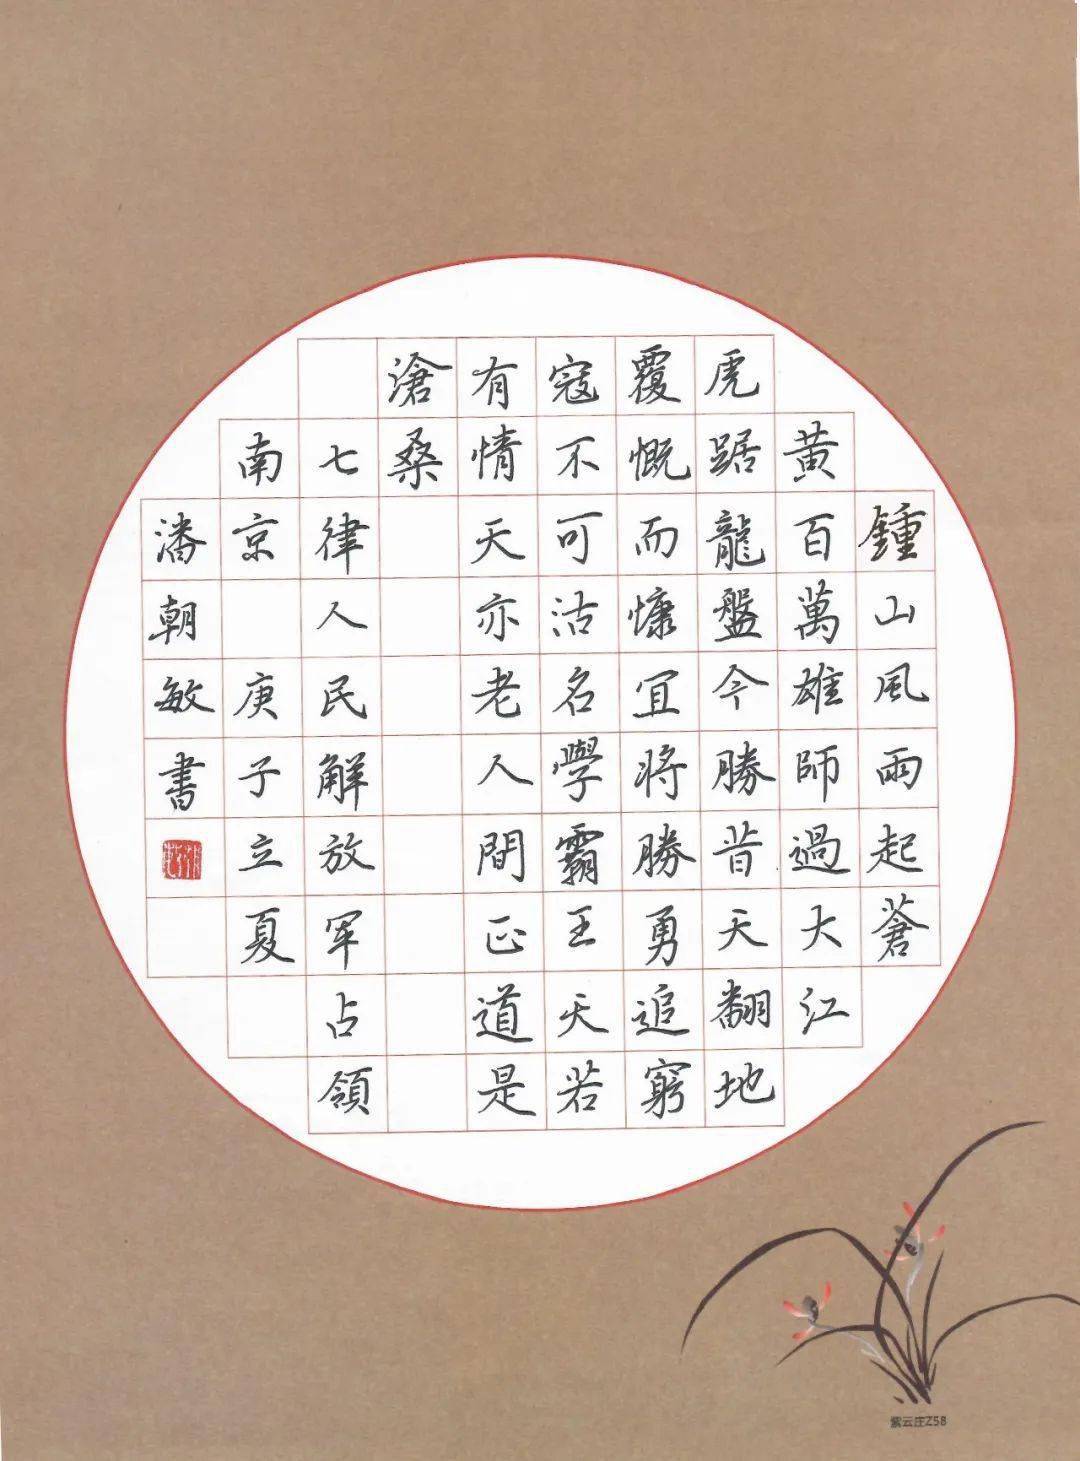 鍾山風雨起蒼
黄百萬雄師過大江
虎踞龍盤今勝昔天翻地
覆慨而慷宜將勝勇追窮
寇不可沽名學霸王天若
有情天亦老人間正道是
滄桑
七律人民解放軍占領
南京 庚子立夏
潘朝敏書
紫云庄Z58